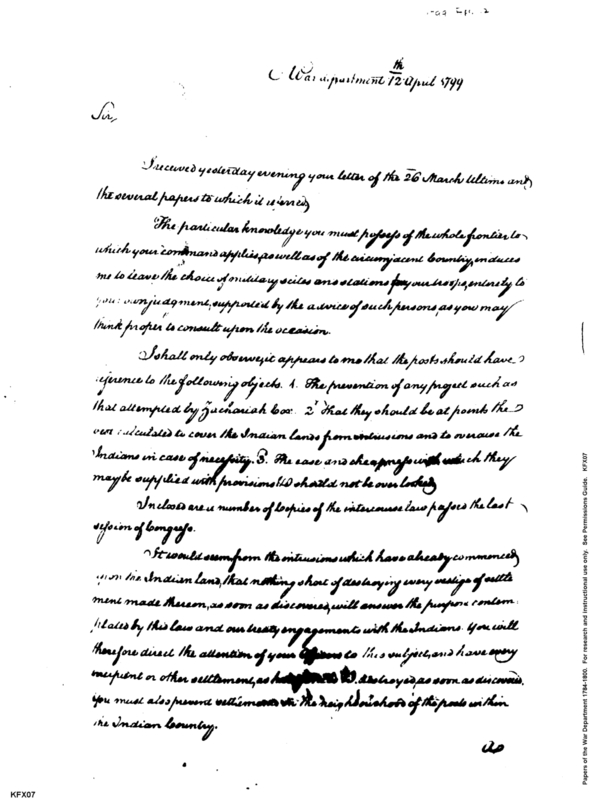 War department 12th April 1799
Sir,
I received yesterday evening your letter of the 26 March Ultimo and
the several papers to which it
The particular knowledge you must possess of the whole frontier to
which your command applies, as well as of the circumjacent Country, induces
me to leave the choice of military scites and stations for your troops, entirely to
your own judgment, supported by the advice of such persons, as you may
think proper to consult upon the occasion.
I shall only observe, it appears to me that the posts should have
reference to the following objects. 1. The prevention of any project such as
that attempted by Zachariah Cox. 2d That they should be at points the
best calculated to cover the Indian lands from intrusions and to overawe the
Indians in case of necessity. 3. The ease and cheapness with which they
may be supplied with provisions should not be overlooked
Inclosed are a number of Copies of the intercourse law passed the last
session of Congress.
It would seem from the intrusions which have already commenced
upon the Indian land, that nothing short of destroying every vestige of settle
ment made thereon, as soon as discovered, will answer the purpose contem
plated by this law and our treaty engagements with the Indians. You will
therefore direct the attention of your Officers to this subject, and have every
incipient or other settlement, as destroyed, as soon as discovered.
You must also prevent settlements in the neighbourhood of the posts within
the Indian Country.
As
KFX07
Papers of the War Department 1784-1800. For research and instructional use only. See Permissions Guide. KFX07